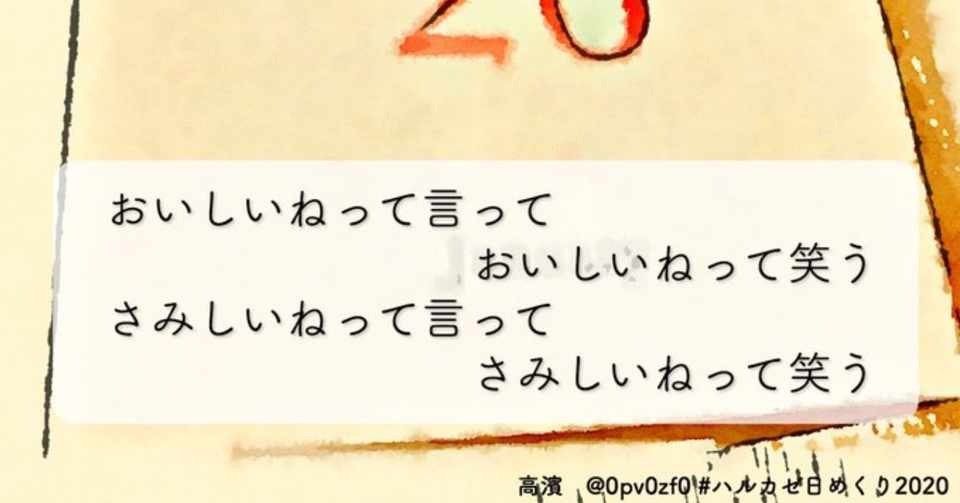 20
おいしいねって言って
おいしいねって笑う
さみしいねって言って
さみしいねって笑う
高濱 @0pv0zf0 #ハルカゼ日めくり2020